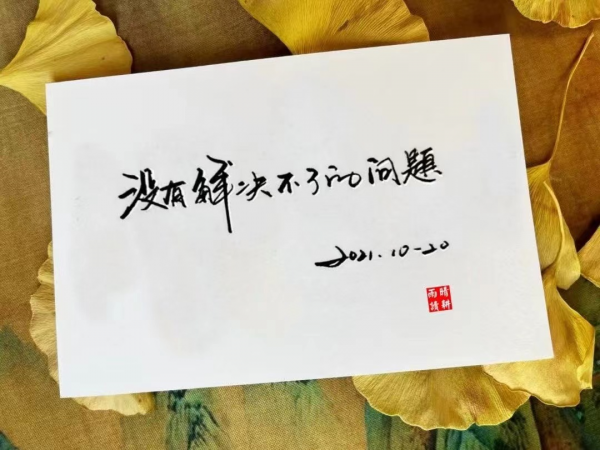 没有解决不了的问题
2021.10-20
晴耕
雨讀